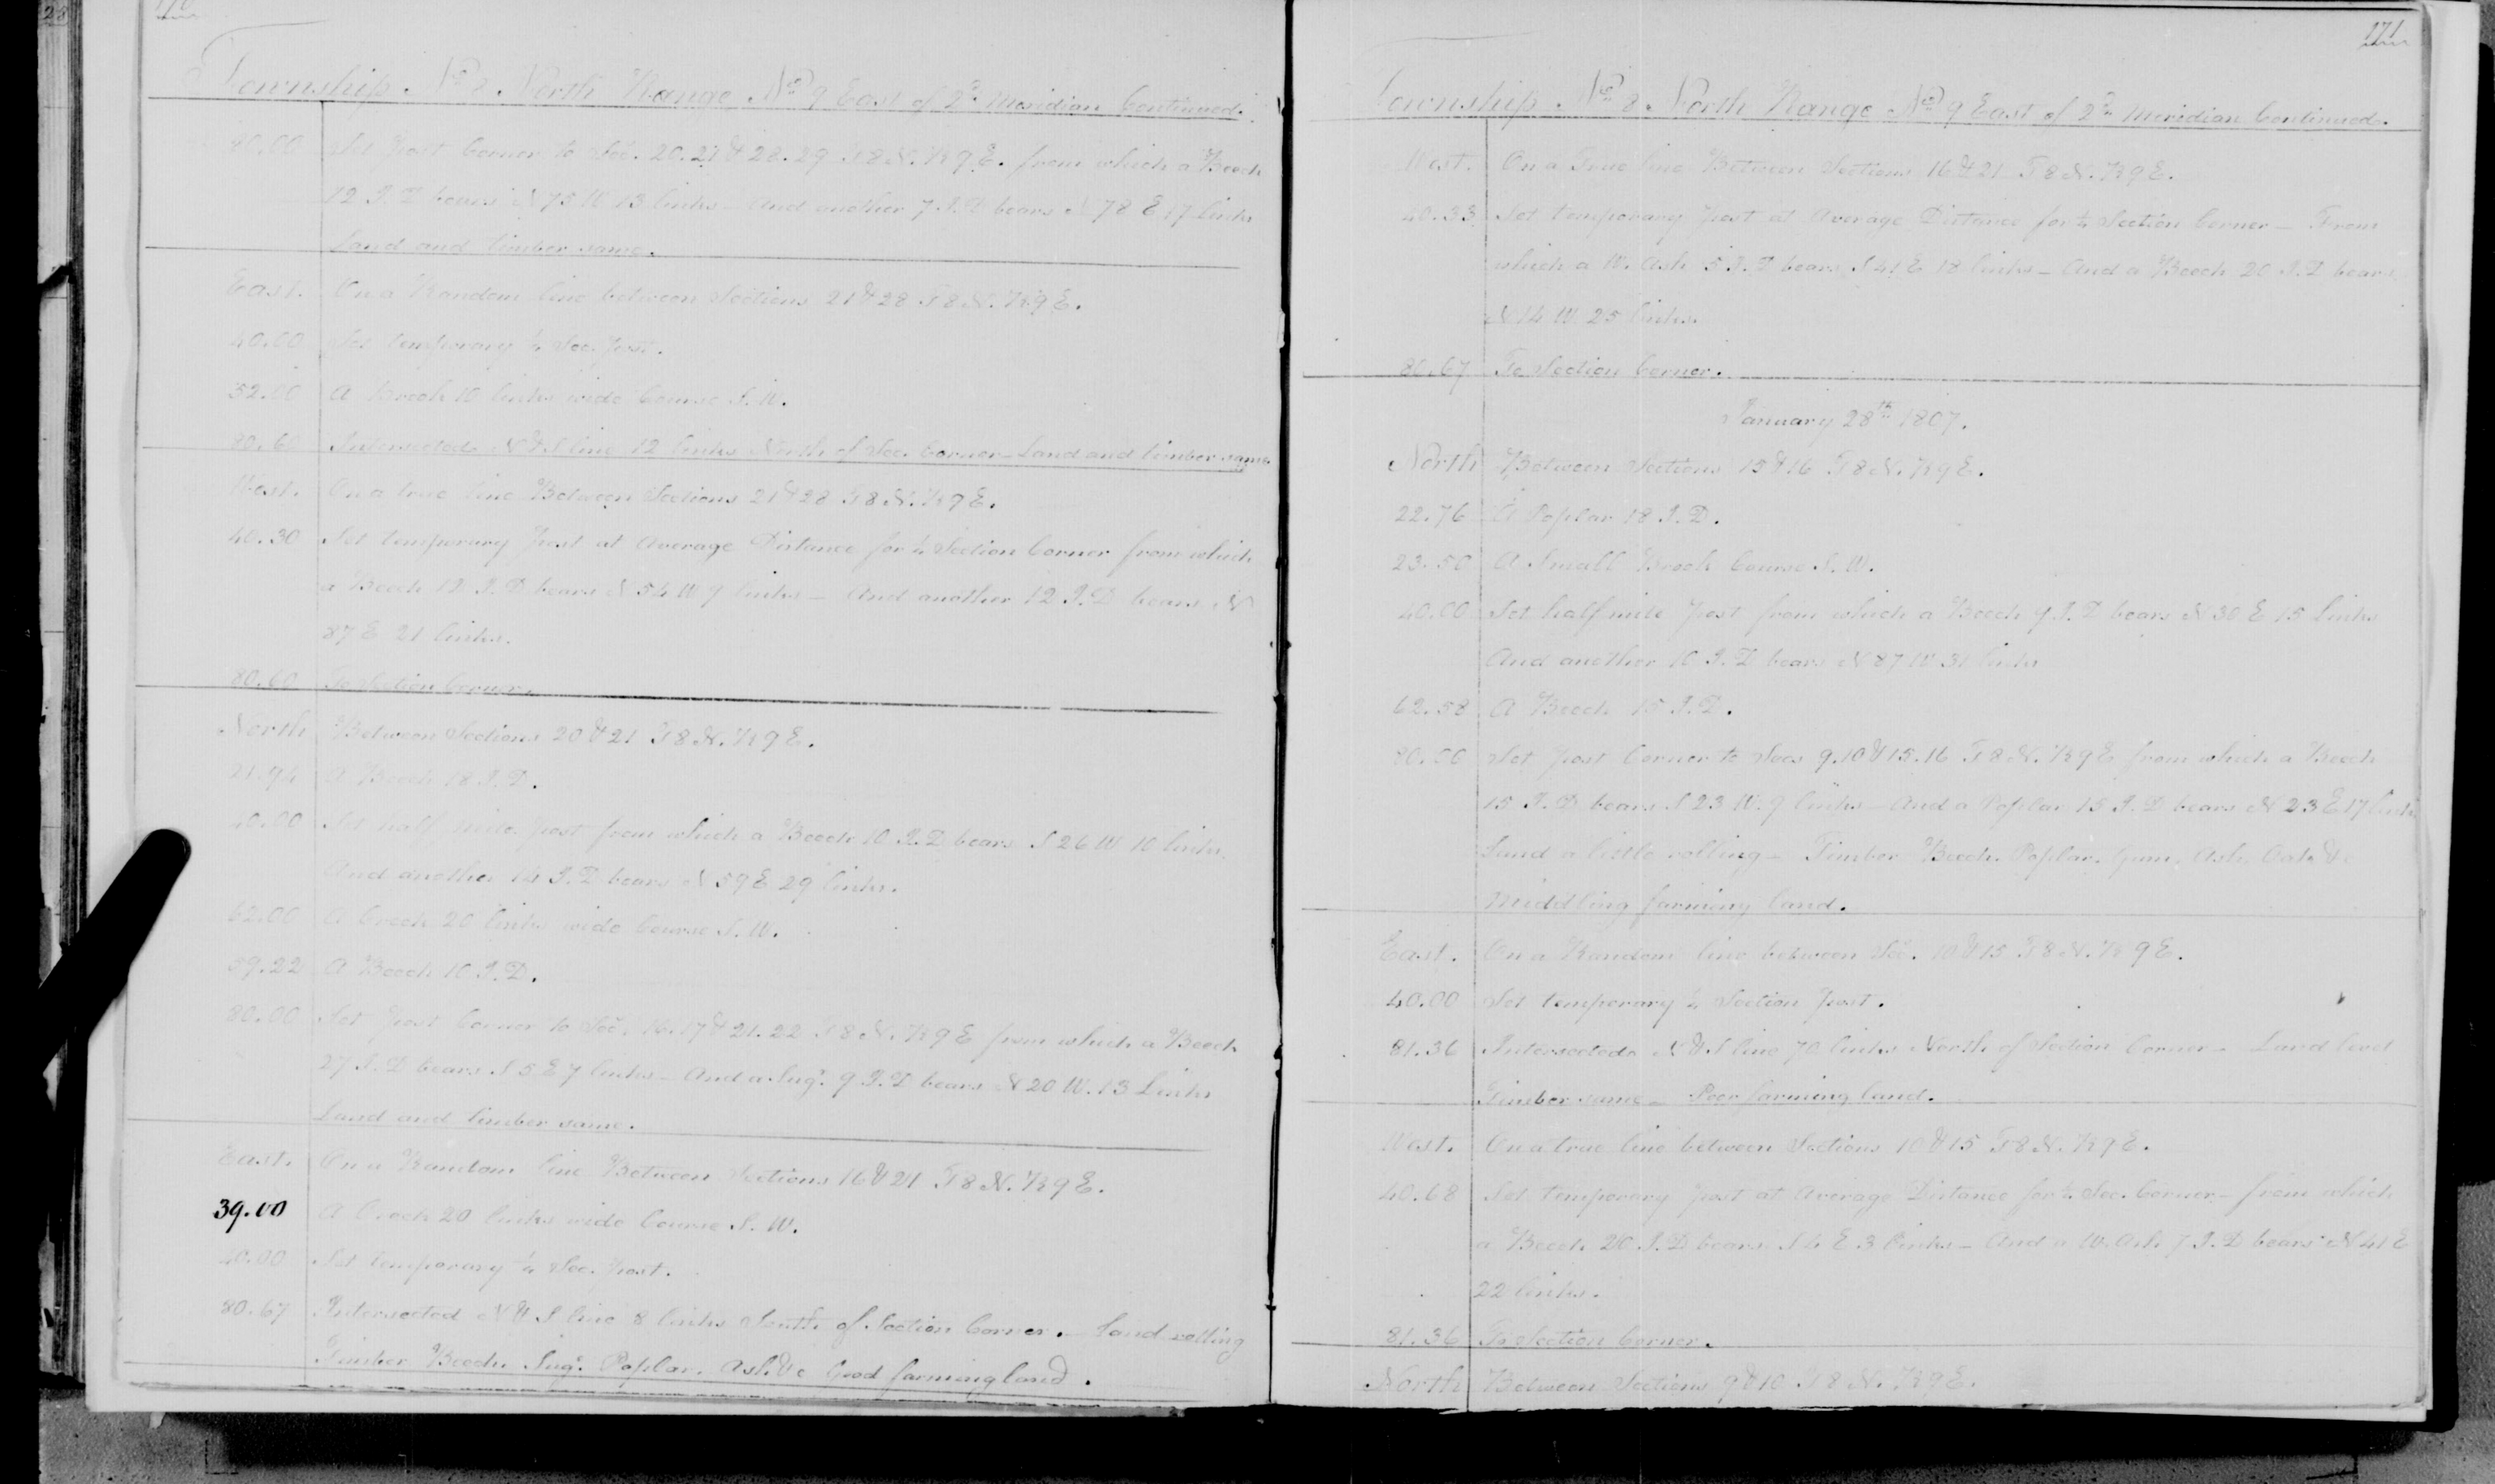 170
Township No 8 North Range No 9 East of 2d Meridian Continued.
80.00 Set Post Corner to Sec. 20.21 & 28.29 T8N. R9E. from which a Beech
12 I.D bears N 75 W 13 links – And another 7 I.D bears N 78 E 17 links
Land and timber same.
East. On a Random line between Sections 21 & 28 T8N. R9E.
40.00 Set temporary ¼ Sec. Post.
52.00 A Brook 10 links wide Course S.W.
80.60 Intersected N & S line 12 links North of Sec. Corner – Land and timber same
West. On a true line Between Sections 21 & 28 T8N. R9E.
40.30 Set temporary Post at Average Distance for ¼ Section Corner from which
a Beech 12 I.D bears N 54 W 7 links – And another 12 I.D bears N
87 E 21 links.
80.60 To Section Corner.
North Between Sections 20 & 21 T8N. R9E.
21.94 A Beech 18 I.D.
40.00 Set half mile Post from which a Beech 10 I.D bears S 26 W 10 links
And another 14 I.D bears N 59 E 29 links.
42.00 A Creek 20 links wide Course S.W.
59.22 A Beech 10 I.D.
80.00 Set Post Corner to Sec. 16.17 & 21.22 T8N. R9E from which a Beech
27 I.D bears S 5 E 7 links – And a Sugr. 9 I.D bears N 20 W. 13 Links
Land and timber same.
East. On a Random line Between Sections 16 & 21 T8N. R9E.
39.00 A Creek 20 links wide Course S.W.
40.00 Set temporary ¼ Sec. Post.
80.67 Intersected N & S line 8 links South of Section Corner. – Land rolling
Timber Beech. Sugr. Poplar. Ash. &c Good farming land.
171
Township No 8 North Range No 9 East of 2d Meridian Continued.
West. On a True line Between Sections 16 & 21 T8N. R9E.
40.33 Set temporary Post at Average Distance for ¼ Section Corner – From
which a W. Ash 5 I.D bears S 41 E 18 links – And a Beech 20 I.D bears
N 14 W 25 links.
80.67 To Section Corner.
January 28th 1807.
North Between Sections 15 & 16 T8N. R9E.
22.76 A Poplar 18 I.D.
23.50 A Small Brook Course S.W.
40.00 Set half mile Post from which a Beech 9 I.D bears N 30 E 15 links
And another 10 I.D bears N 87 W 31 links
62.58 A Beech 15 I.D.
80.00 Set Post Corner to Secs 9.10 & 15.16 T8N. R9E from which a Beech
15 I.D bears S 23 W. 9 links – And a Poplar 15 I.D bears N 23 E 17 links
Land a little rolling – Timber Beech. Poplar. Gum. Ash. Oak &c
Middling farming land.
East. On a Random line between Sec. 10 & 15 T8N. R9E.
40.00 Set temporary ¼ Section Post.
81.36 Intersected N & S line 70 links North of Section Corner – Land level
Timber same – Poor farming land.
West. On a true line between Sections 10 & 15 T8N. R9E.
40.68 Set temporary Post at Average Distance for ¼ Sec. Corner – from which
a Beech 20 I.D bears S 4 E 3 links – And a W. Ash 7 I.D bears N 41 E
22 links.
81.36 To Section Corner.
North Between Sections 9 & 10 T8N. R9E.